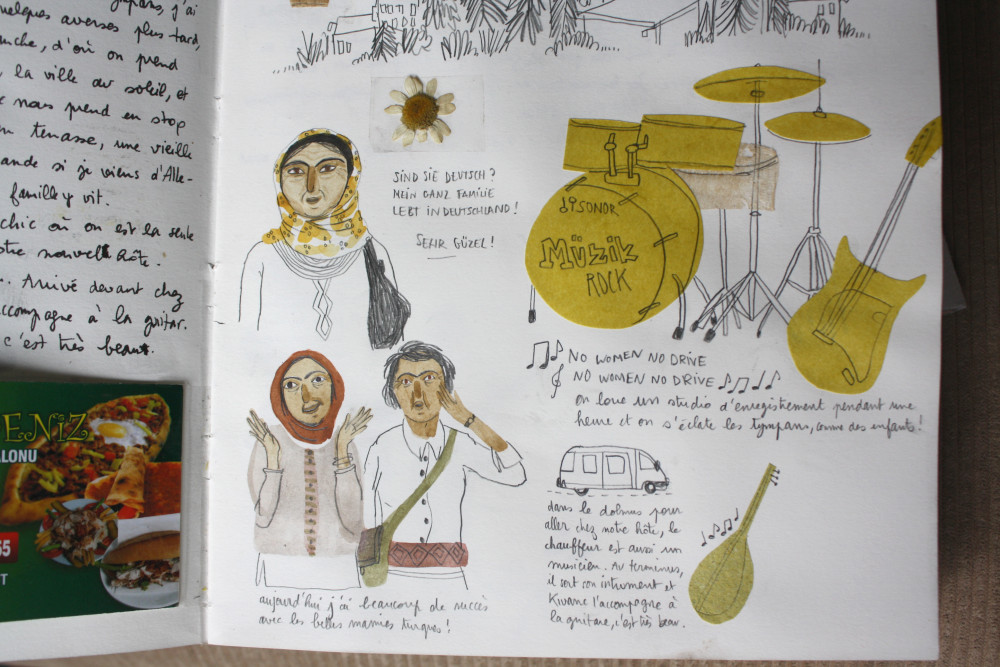 j'ai
quelques averses plus tard,
d'où on prend
la ville du soleil, et
nous prend en stop
terrasse, une vieille
si je viens d'Alle-
famille y vit.
chic où on est la seule
notre nouvel hôte.
Arrivé devant chez
accompagne à la guitar.
c'est très beau.
ENİZ
ALONU
55
T
SIND SIE DEUTSCH ?
MEIN GANZ FAMILIE
LEBT IN DEUTSCHLAND !
SEHR GÜZEL !
SONOR
Müzik
ROCK
NO WOMEN NO DRIVE
NO WOMEN NO DRIVE
on loue un studio d'enregistrement pendant une
heure et on s'éclate les tympans, comme des enfants !
dans le dolmus pour
aller chez notre hôte, le
chauffeur est aussi un
musicien. Au terminus,
il sort son intrument et
l'accompagne à
la guitare, c'est très beau.
aujourd'hui j'ai beaucoup de succès
avec les belles mamies turques !